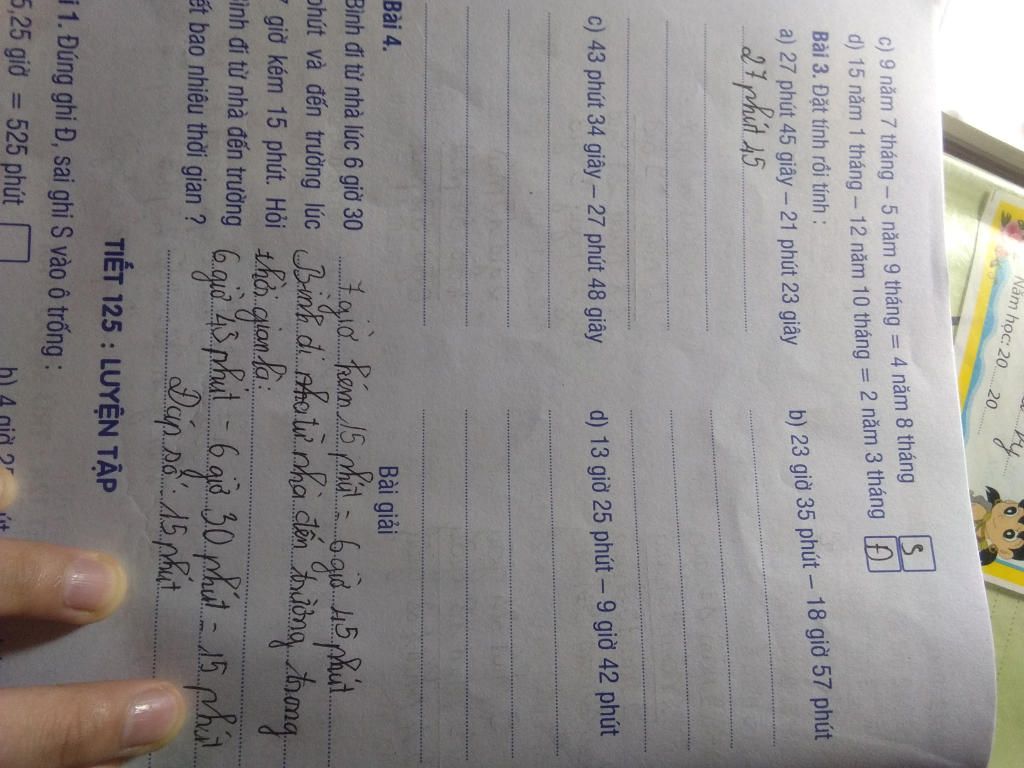 c) 9 năm 7 tháng – 5 năm 9 tháng = 4 năm 8 tháng S
d) 15 năm 1 tháng – 12 năm 10 tháng = 2 năm 3 tháng Đ
Bài 3. Đặt tính rồi tính :
a) 27 phút 45 giây – 21 phút 23 giây
b) 23 giờ 35 phút – 18 giờ 57 phút
27 phút 45
c) 43 phút 34 giây – 27 phút 48 giây
d) 13 giờ 25 phút – 9 giờ 42 phút
Bài 4.
Bình đi từ nhà lúc 6 giờ 30
phút và đến trường lúc
7 giờ kém 15 phút. Hỏi
Bình đi từ nhà đến trường
hết bao nhiêu thời gian ?
Bài giải
7 giờ kém 15 phút = 6 giờ 45 phút
Bình đi từ nhà đến trường trong
thời gian là:
6 giờ 45 phút - 6 giờ 30 phút = 15 phút
Đáp số: 15 phút
TIẾT 125 : LUYỆN TẬP
i 1. Đúng ghi Đ, sai ghi S vào ô trống :
5,25 giờ = 525 phút
b) 4 giờ
Năm học: 20......20......